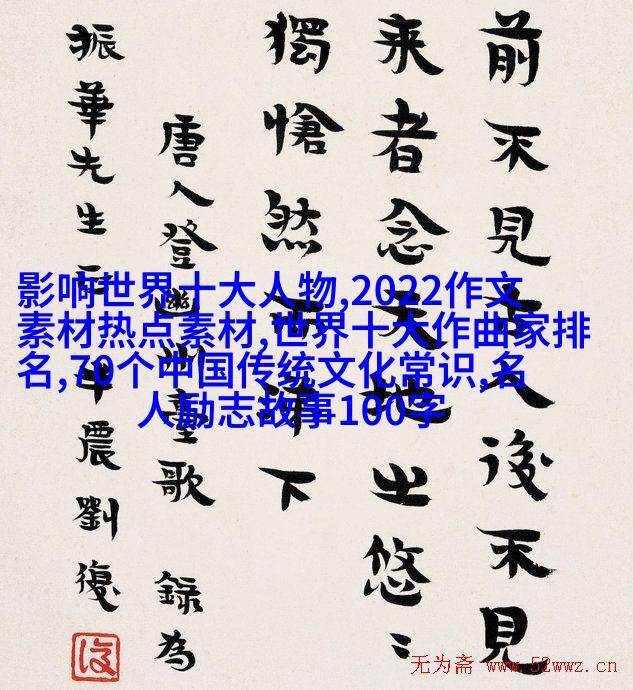 前不見古人後不見
来者念天地之悠〻
獨愴然而涕下
唐人登幽州臺歌 錄為
振華先生 半農劉復
影响世界十大人物,2022作文
素材热点素材,世界十大作曲家排
名,70个中国传统文化常识,名
人励志故事100字
无为斋 www.52wwz.cn